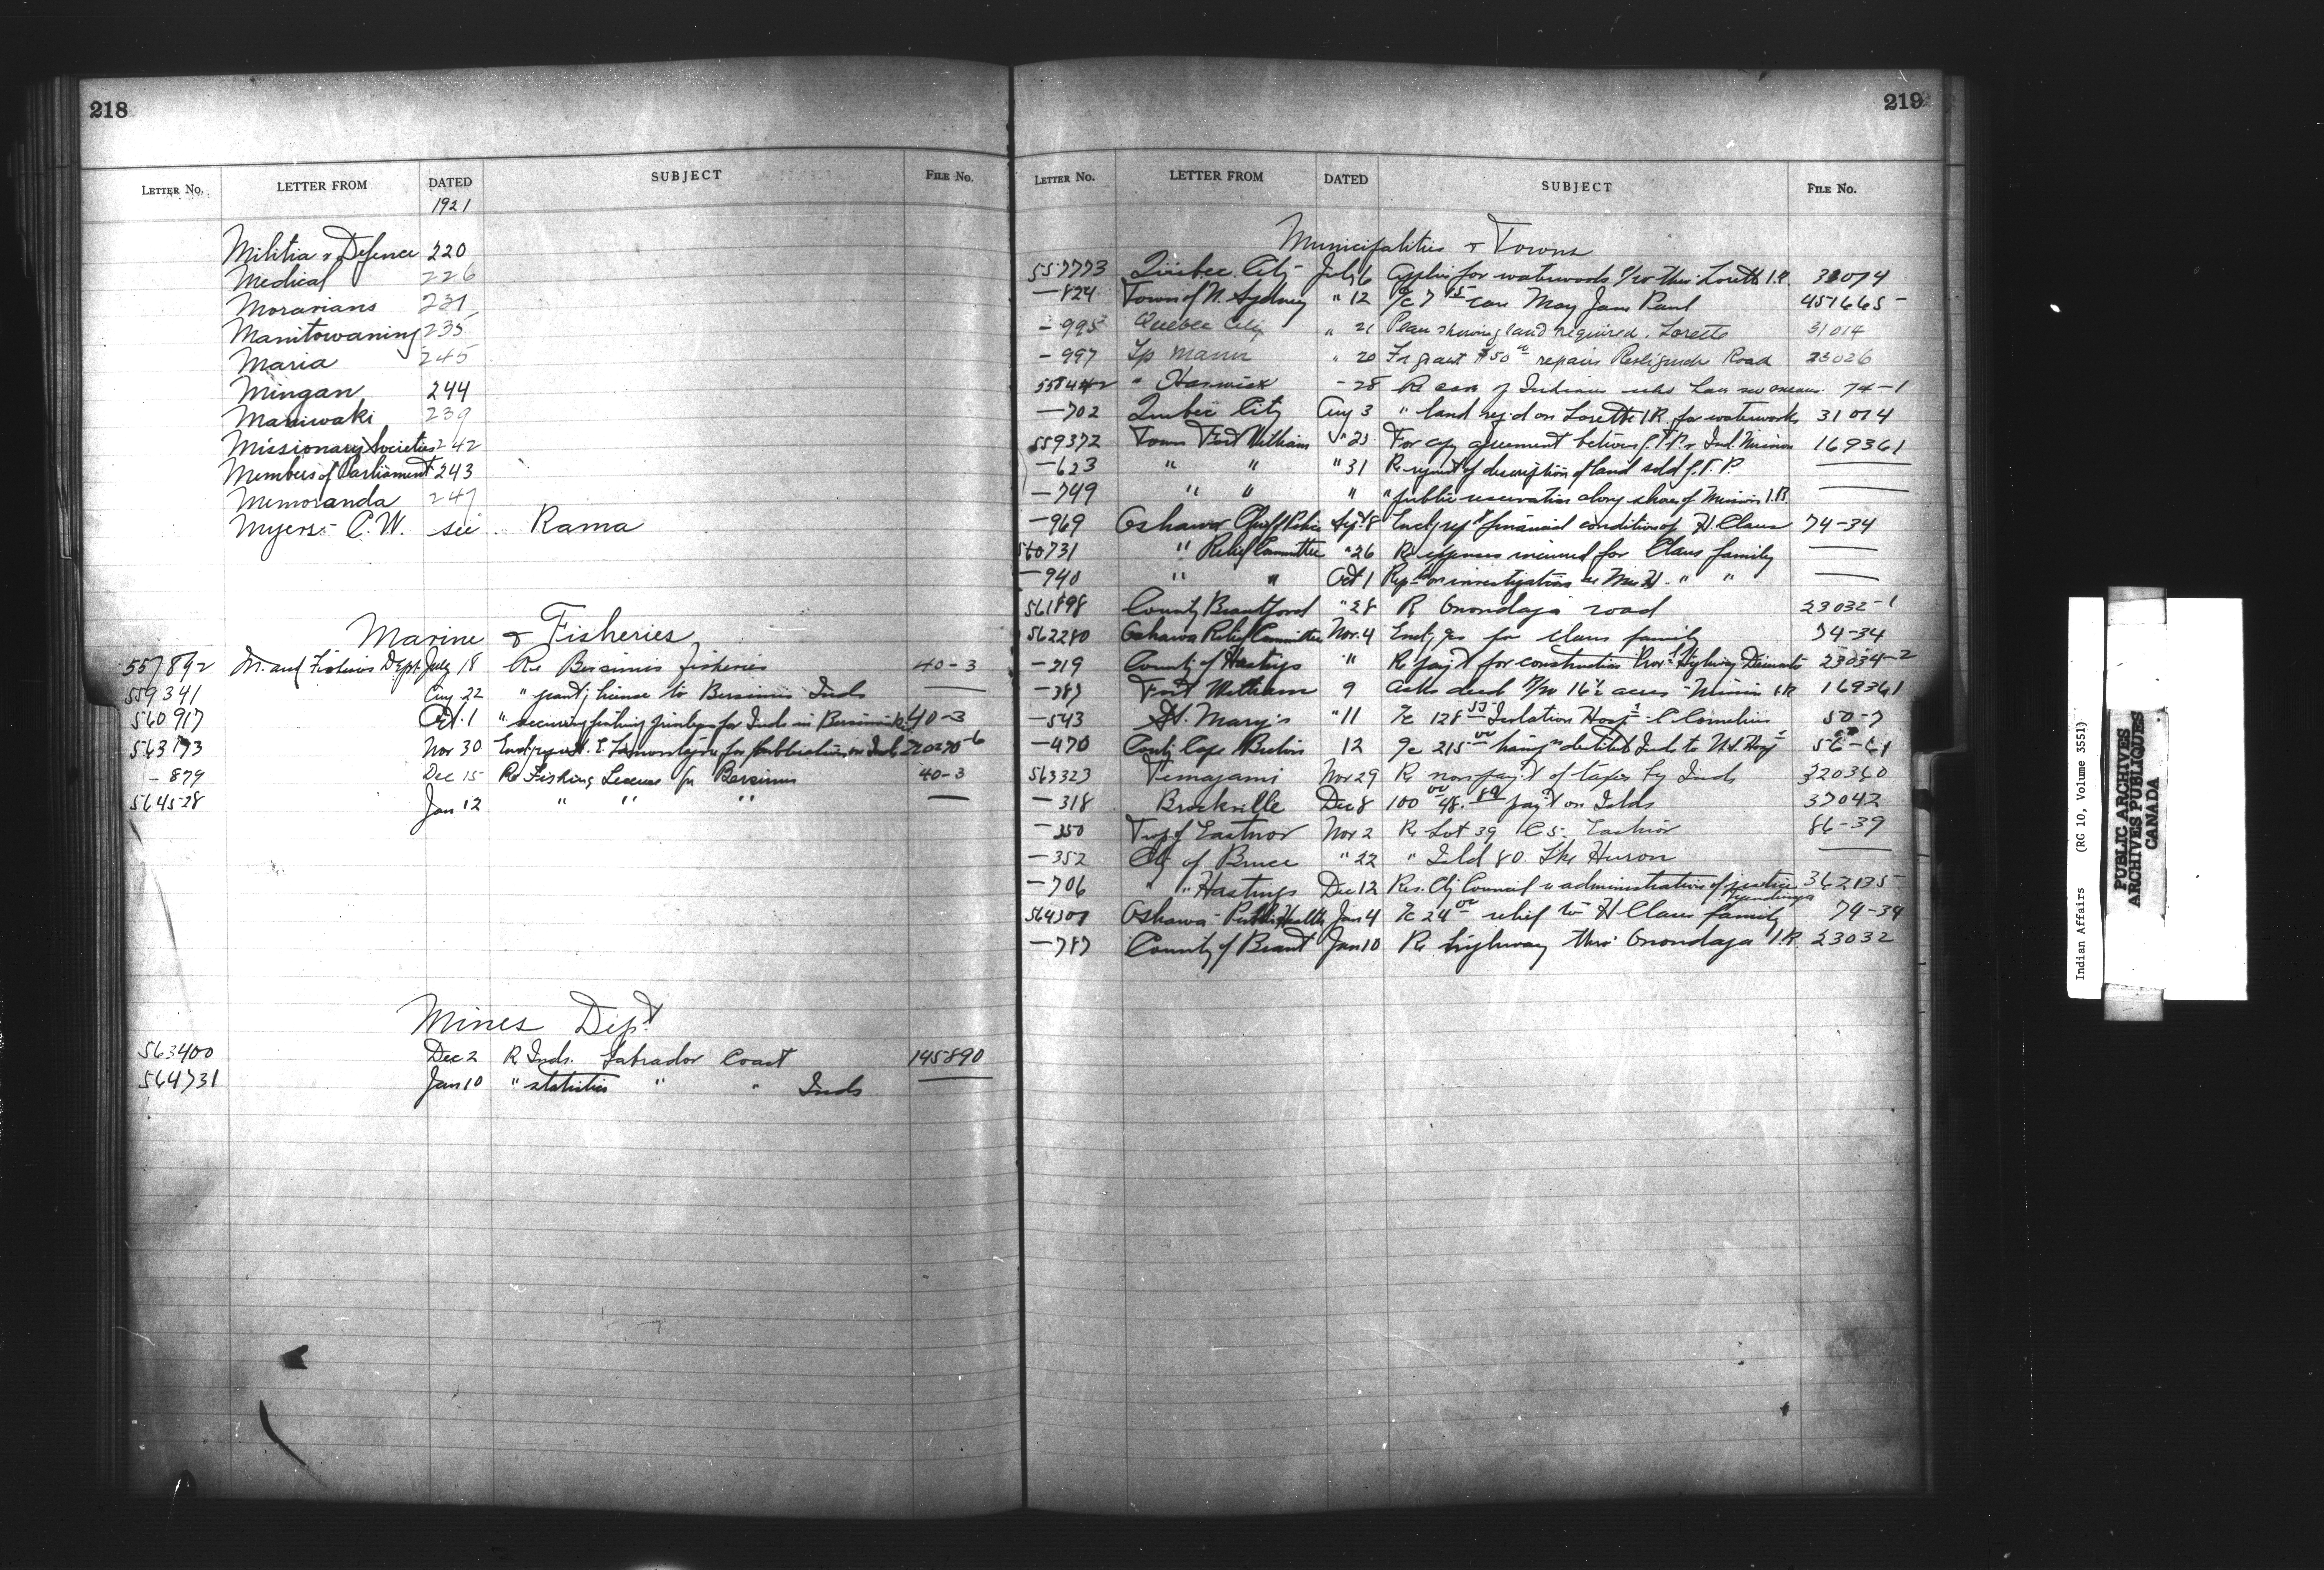 218
LETTER No. LETTER FROM DATED SUBJECT FILE No.
1921
Militia & Defence 220
Medical 226
Moravians 231
Manitowaning 235
Maria 245
Mingan 244
Maniwaki 239
Missionary Societies 242
Members of Parliament 243
Memoranda 247
Myers - C.W. see Rama
Marine & Fisheries
557892 M. and Fisheries Dept. July 18 Re Bersimis fisheries 40-3
559341 Aug 22 " grant; license to Bersimis Inds —
560917 Oct. 1 " securing fishing privileges for Inds in Bersimis 40-3
563193 Nov 30 for publication on Inds
- 879 Dec 15 Re Fishing License for Bersimis 40-3
564528 Jan 12 " " " —
Mines Dept
563400 Dec 2 R Inds. Labrador Coast 145890
564731 Jan 10 " statistics " " Inds —
219
LETTER No. LETTER FROM DATED SUBJECT FILE No.
Municipalities & Towns
557773 Quebec City July 6 for waterworks thro Lorette I.R. 31014
—824 Town of N. Sydney " 12 May Jane Paul 457665
- 995 Quebec City " 21 Plan showing land required. Lorette 31014
- 997 Tp Mann " 20 For grant $50 00 repairs Restigouche Road 23026
558442 " Harwick - 28 Re case of Indians who have no means 74-1
—702 Quebec City Aug 3 " land req'd on Lorette I.R. for waterworks 31014
559372 Town Fort William " 23 For copy agreement between G.T.P. & Ind. Mission 169361
—623 " " " 31 Re request of description of land sold G.T.P. —
—749 " " " " public reservation along shore of Mission I.R. —
—969 Oshawa Chief Police Sept 8 Encl; rept financial condition of H. Claus 74-34
560731 " Relief Committee " 26 Re expenses incurred for Claus family —
—940 " " Oct 1 Rept on investigation re Mrs H. " " —
561898 County Brantford " 28 R Onondaga road 23032-1
562280 Oshawa Relief Committee Nov. 4 Encl; for Claus family 74-34
—219 County of Hastings " Re pay't for construction Prov'l Highway Deseronto 23034-2
—387 Fort William 9 Asks deed 16½ acres - Mission I.R. 169361
—543 St. Mary's " 11 128 55 Isolation Hosp'l - C Cornelius 50-7
—470 Cape Breton 12 215 00 destitute Inds to Hosp'l
563323 Temagami Nov 29 Re non pay't of taxes by Inds 320340
—318 Brockville Dec 8 100 00 48. 89 pay't on Islds 37042
—350 Twp of Eastnor Nov 2 Re Lot 39 C 5. Eastnor 86-39
—352 Cty of Bruce " 22 " Isld 80. Lke Huron —
—706 " " Hastings Dec 12 Res. Cty Council re administration of justice Tyendinaga 362135
564307 Oshawa - Public Health Jan 4 24 00 relief to H Claus family 74-34
—787 County of Brant Jan 10 Re highway thro' Onondaga I.R. 23032
Indian Affairs (RG 10, Volume 3551)
PUBLIC ARCHIVES
ARCHIVES PUBLIQUES
CANADA